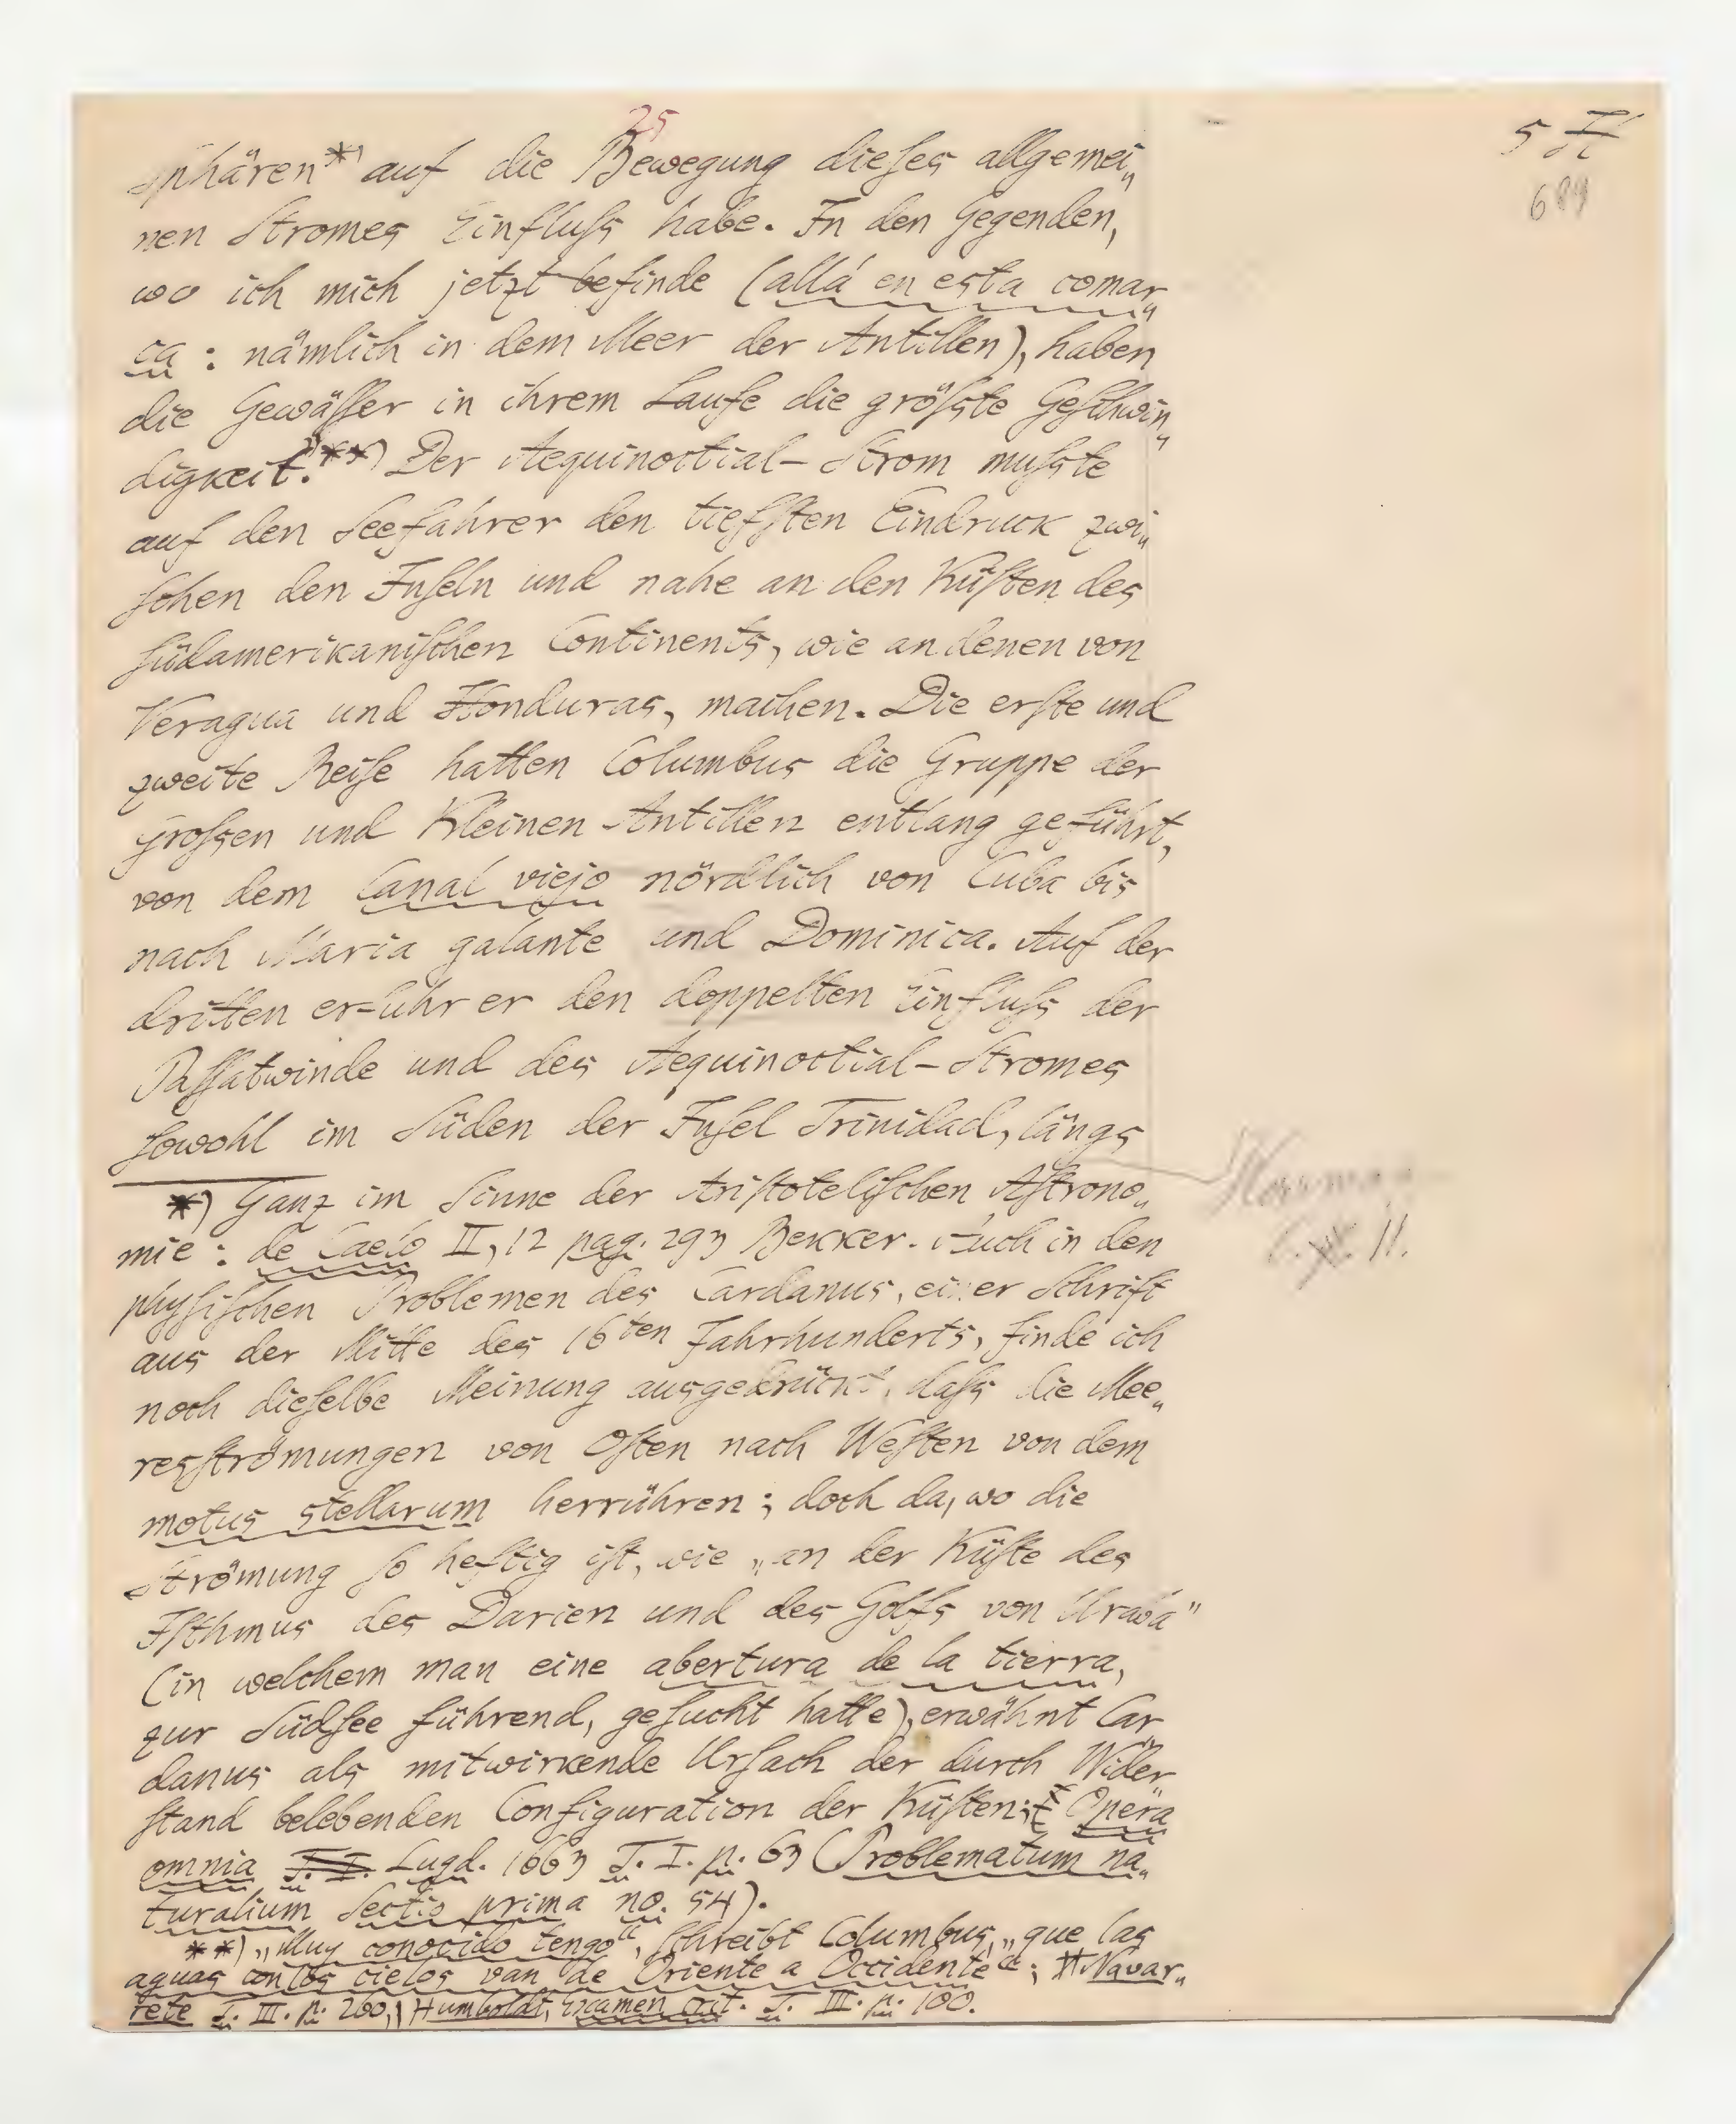 25
5
689
Sphären*) auf die Bewegung dieſes allgemei„
nen Stromes Einfluſs habe. In den Gegenden,
wo ich mich jetzt befinde (allá en esta comar„
ca: nämlich in dem Meer der Antillen), haben
die Gewäſſer in ihrem Laufe die gröſste Geſchwin„
digkeit.“**) Der Aequinoctial-Strom muſste
auf den Seefahrer den tiefſten Eindruck zwi„
ſchen den Inſeln und nahe an den Küſten des
ſüdamerikaniſchen Continents, wie an denen von
Veragua und Honduras, machen. Die erſte und
zweite Reiſe hatten Columbus die Gruppe der
Groſsen und Kleinen Antillen entlang geführt,
von dem Canal viejo nördlich von Cuba bis
nach Maria galante und Dominica. Auf der
dritten erfuhr er den doppelten Einfluſs der
Paſſatwinde und des Aequinoctial-Stromes
ſowohl im Süden der Inſel Trinidad, längs
*) Ganz im Sinne der Ariſtoteliſchen Aſtrono„
mie: de Caelo II, 12 pag. 293 Bekker. Auch in den
phyſiſchen Problemen des Cardanus, einer Schrift
aus der Mitte des 16ten Jahrhunderts, finde ich
noch dieſelbe Meinung ausgedrückt, daſs die Mee„
resſtrömungen von Oſten nach Weſten von dem
motus stellarum herrühren; doch da, wo die
Strömung ſo heftig iſt, wie „an der Küſte des
Iſthmus des Darien und des Golfs von Urabá“
(in welchem man eine abertura de la tierra,
zur Südſee führend, geſucht hatte), erwähnt Car„
danus als mitwirkende Urſach der durch Wider„
ſtand belebenden Configuration der Küſten; Opera
omnia T. I. Lugd. 1663 T. I. p. 63 (Problematum na„
turalium Sectio prima no. 54).
**) „Muy conocido tengo“, ſchreibt Columbus, „que las
aguas con los cielos van de Oriente a Occidente“; Navar„
rete T. III. p. 260, Humboldt, Examen crit. T. III. p. 100.
11.